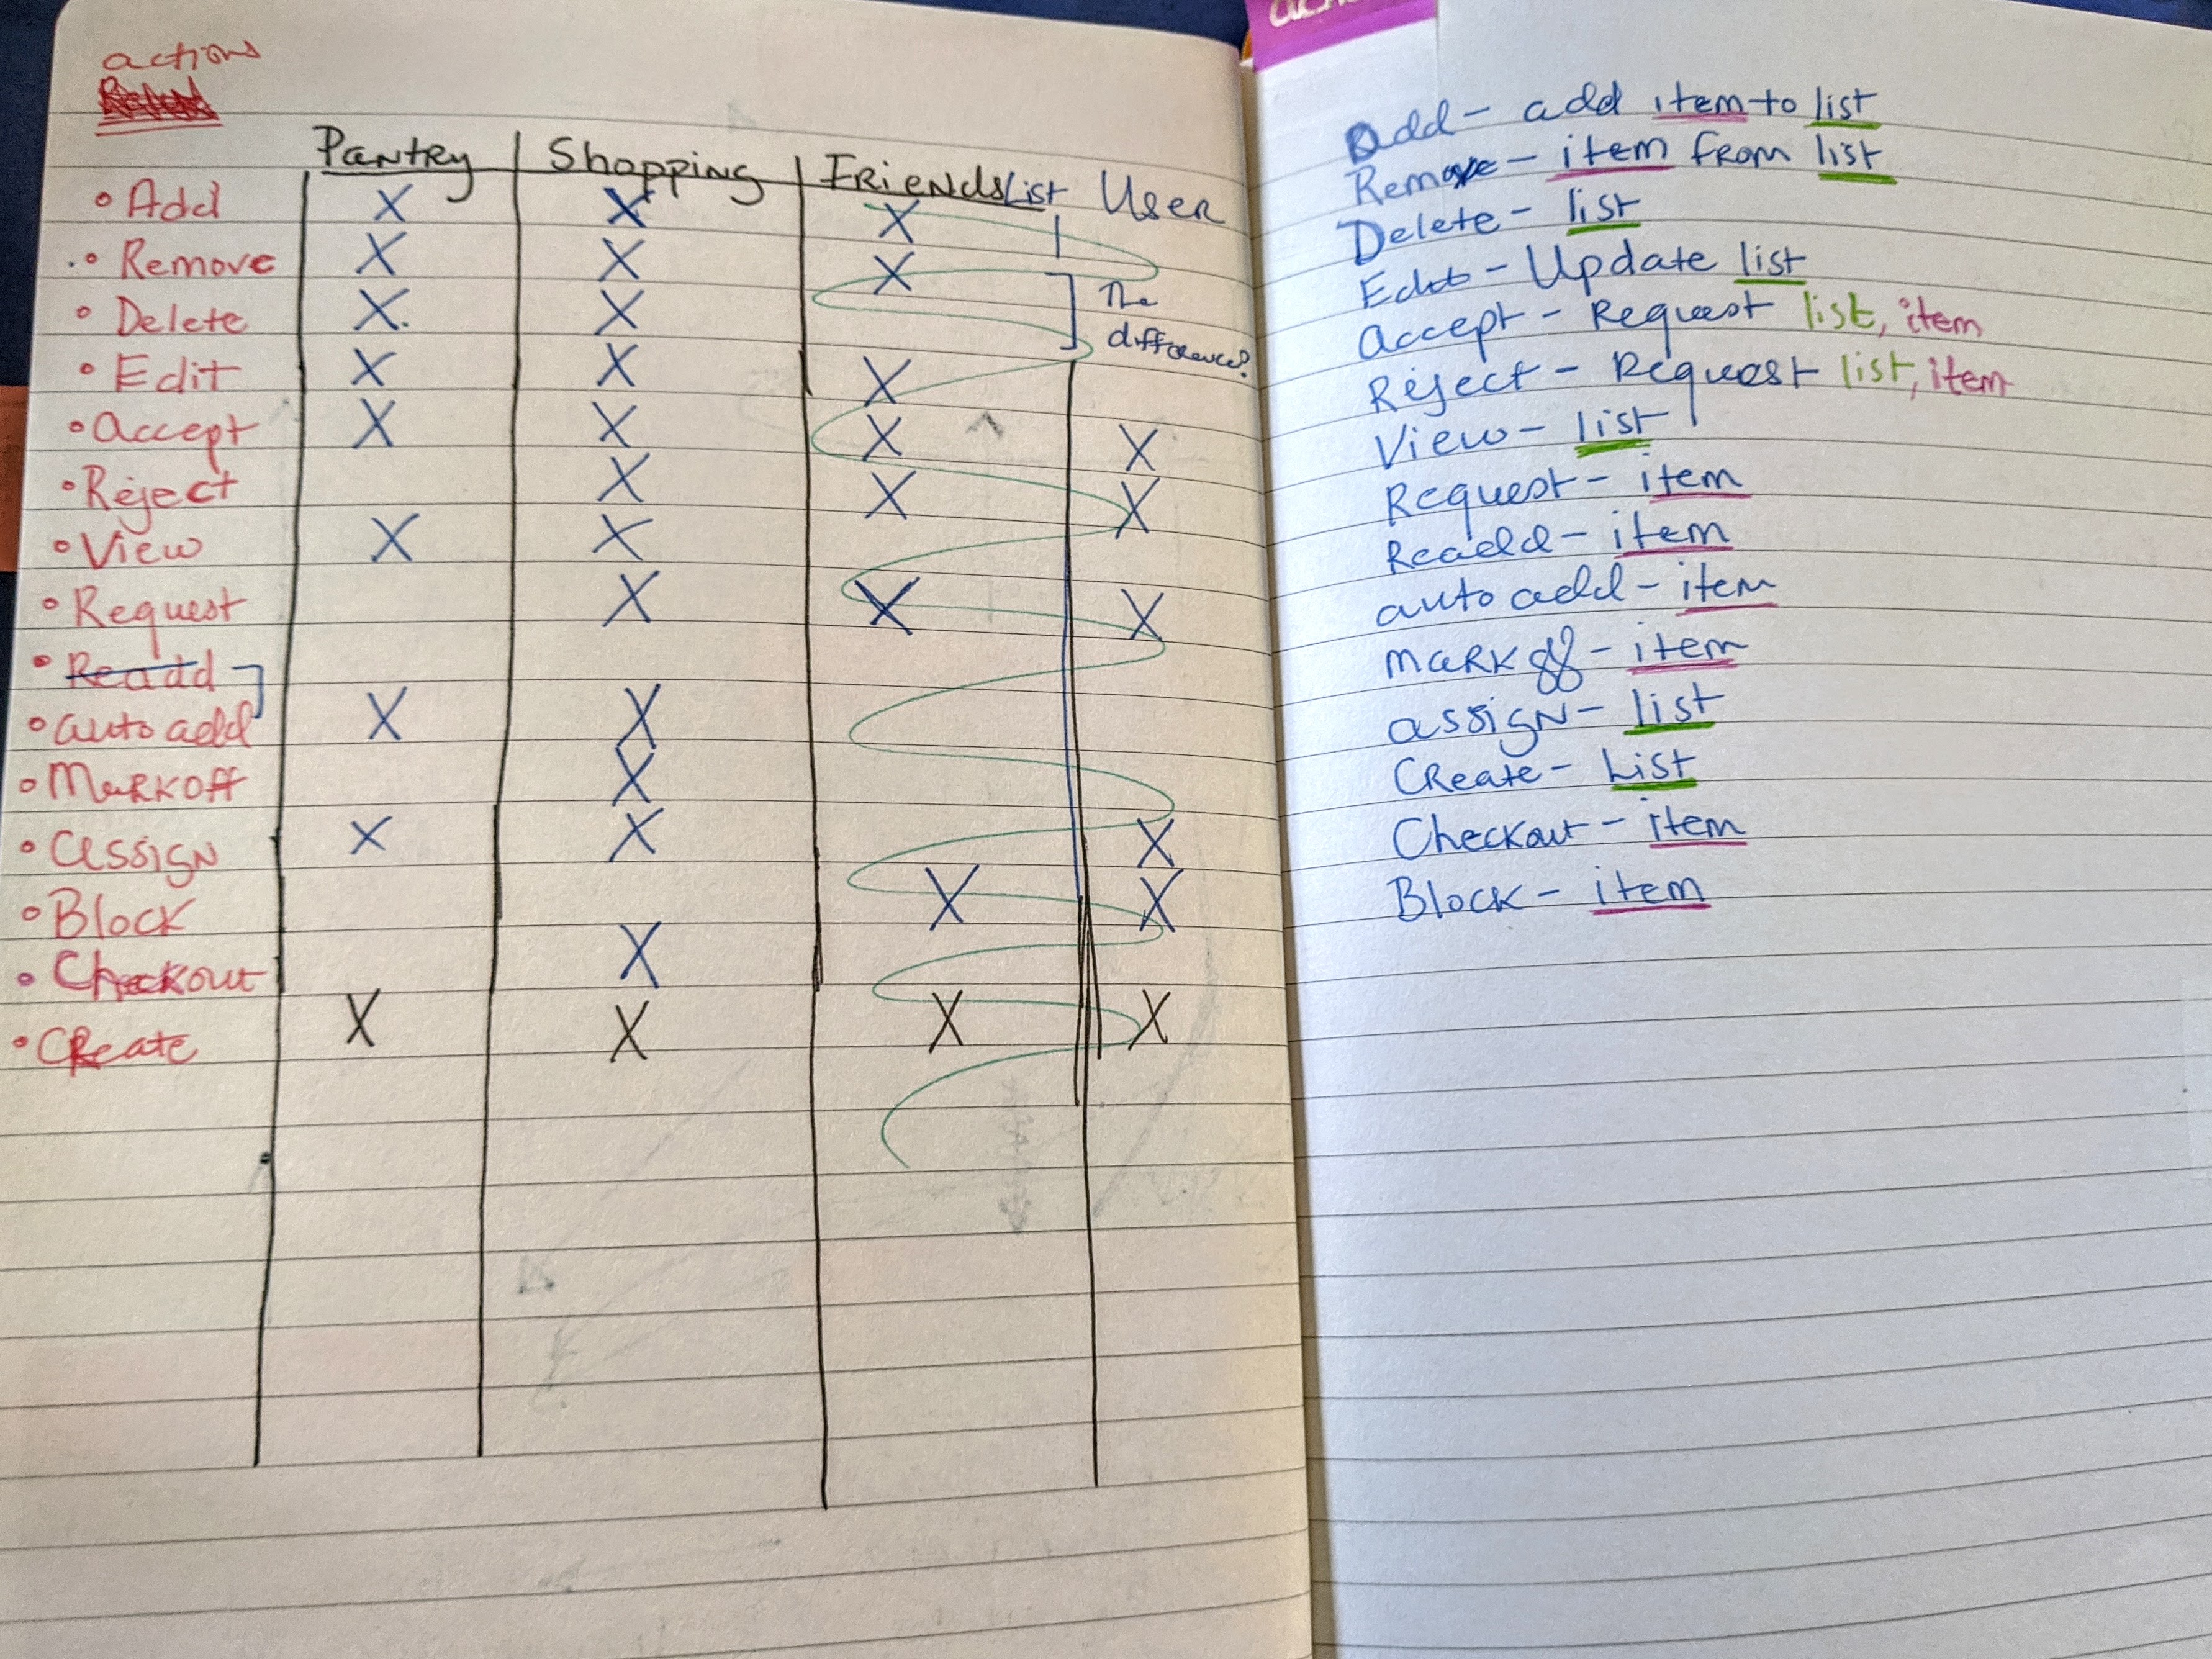 actions
Pantry Shopping Friends List User
• Add X X X
• Remove X X X
• Delete X X The
difference?
• Edit X X X
• Accept X X X X
• Reject X X X
• View X X
• Request X X X
• Readd
• auto add X X
• Markoff X
• assign X X X
• Block X X
• Checkout X
• Create X X X X
Add - add item to list
Remove - item from list
Delete - list
Edit - Update list
Accept - Request list, item
Reject - Request list, item
View - list
Request - item
Readd - item
auto add - item
mark off - item
assign - list
Create - List
Checkout - item
Block - item